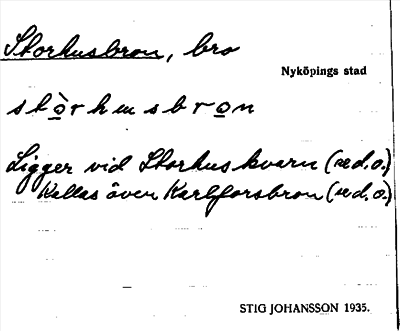 Storhusbron, bro
Nyköpings stad
stòrhusbron
Ligger vid Storhuskvarn (se d.o.)
Kallas även Karlforsbron (se d.o.)
STIG JOHANSSON 1935.